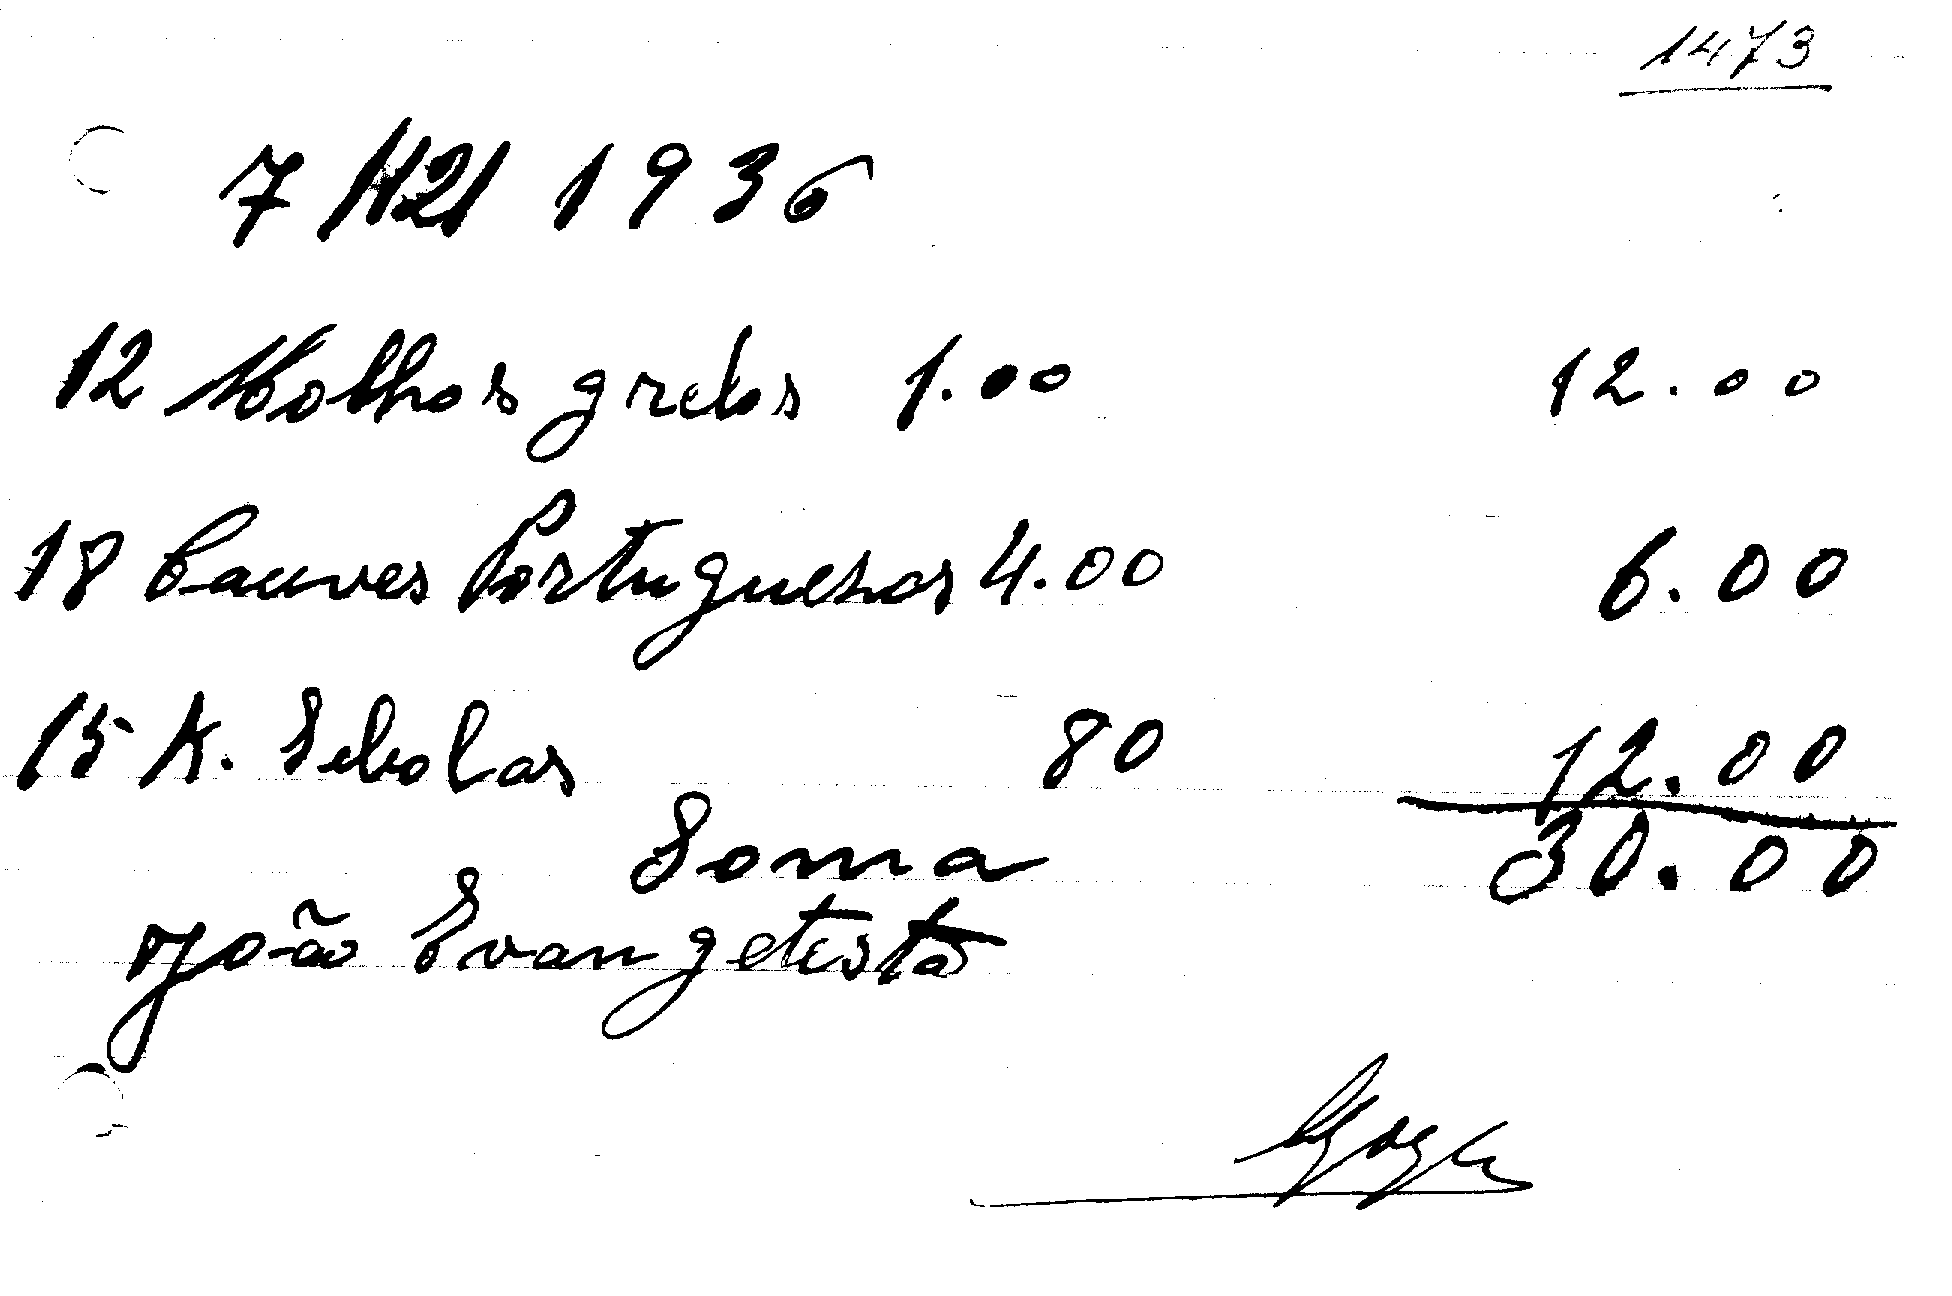 1473
7 /12/ 1936
12 Molhos grelos 1.00 12.00
18 Couves Portuguesas 4.00 6.00
15 K. Sebolas 80 12.00
Soma 30.00
João Evangelista